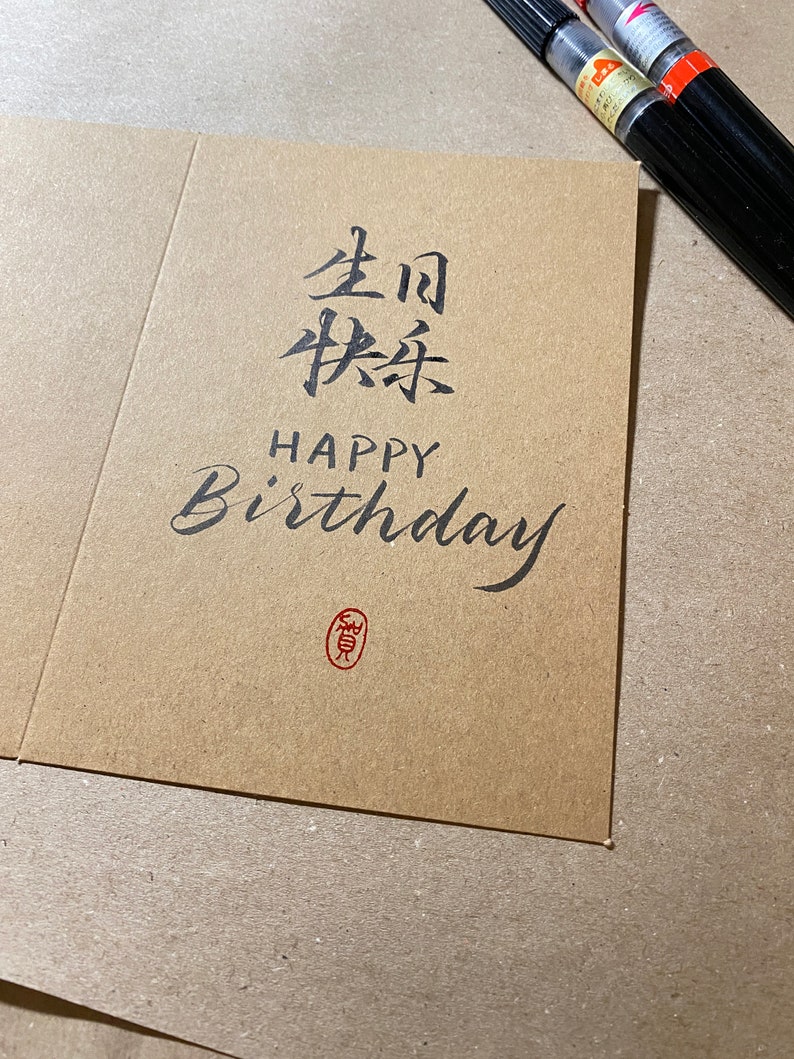 生日
快乐
HAPPY
Birthday
賀
しまる